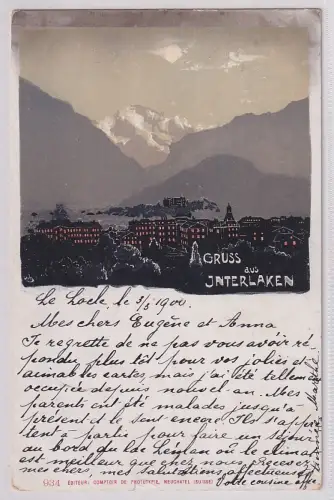 GRUSS
aus
INTERLAKEN
Le Locle, le 3/5 1900.
Mes chers Eugène et Anna
Je regrette de ne pas vous avoir ré-
pondu plus tôt pour vos jolies et
aimables cartes mais j'ai été tellement
occupée depuis nouvel-an Mes
parents ont été malades jusqu'à
présent et le sont encore. Ils s'apprê-
tent à partir pour faire un séjour
au bord du lac Léman où le climat
est meilleur que chez nous. Recevez
mes chers, mes salutations affectueuses
Votre cousine
934 EDITEUR: COMPTOIR DE PHOTOTYPIE, NEUCHATEL (SUISSE)